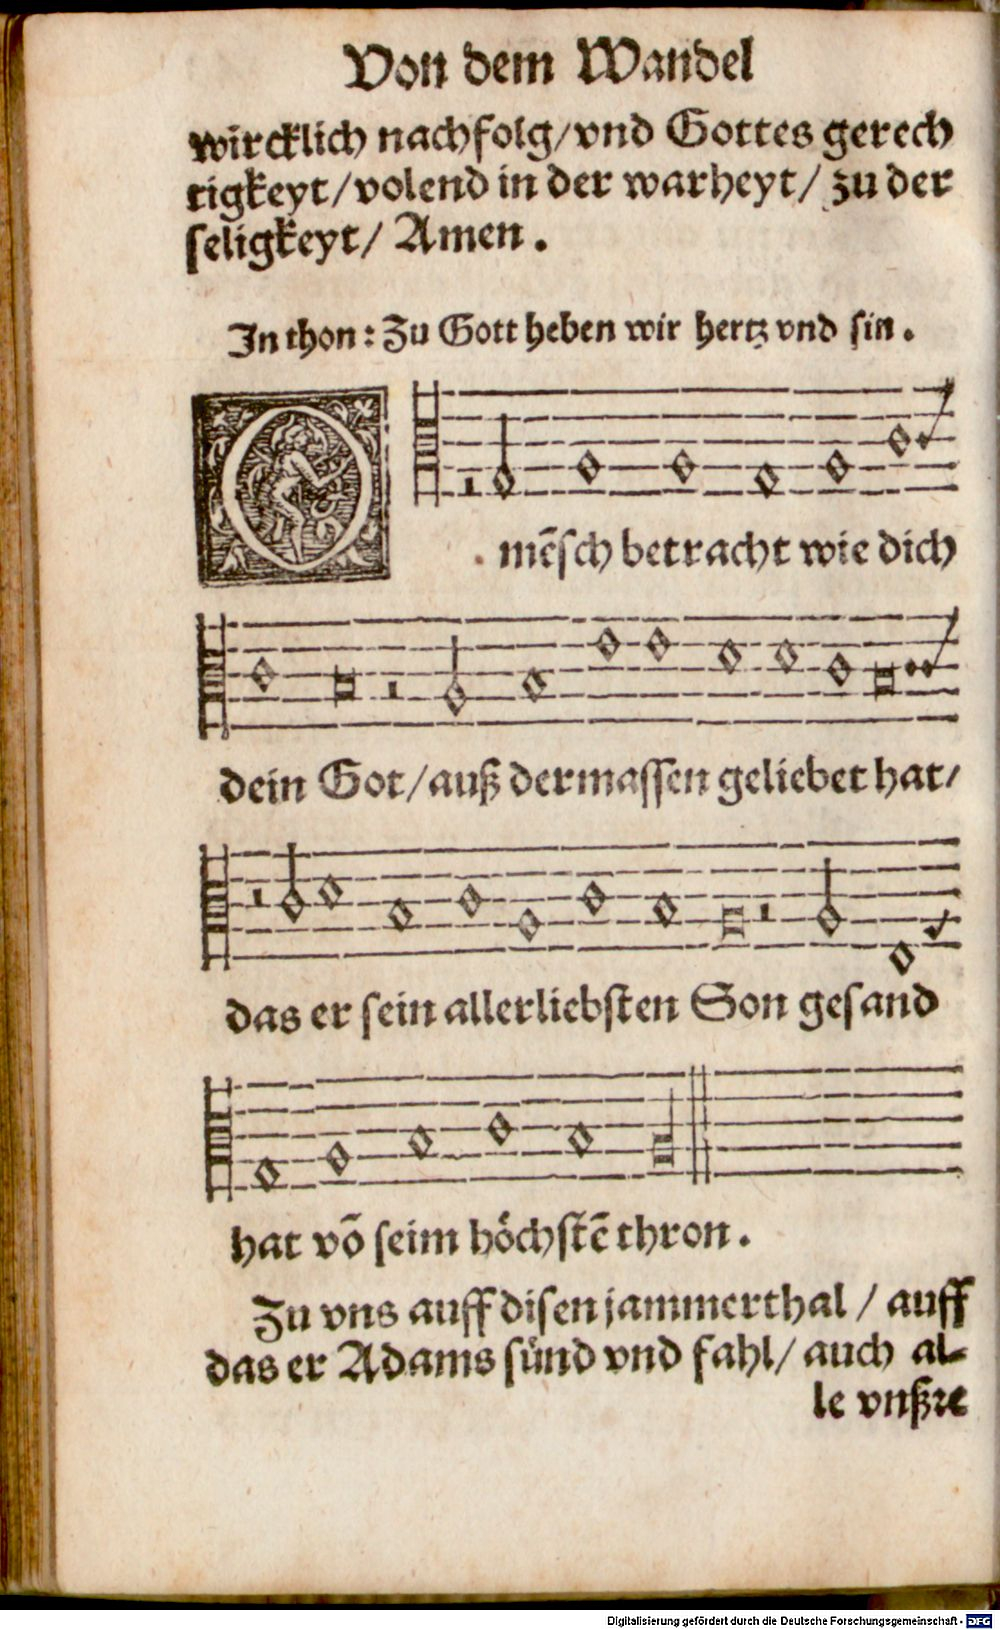 Von dem Wandel
wircklich nachfolg/vnd Gottes gerech
tigkeyt/volend in der warheyt/ zu der
seligkeyt/ Amen.
In thon: Zu Gott heben wir hertz vnd sin.
O
mẽsch betracht wie dich
dein Got/auß dermassen geliebet hat/
das er sein allerliebsten Son gesand
hat võ seim hoͤchstẽ thron.
Zu vns auff disen jammerthal / auff
das er Adams suͤnd vnd fahl/ auch al-
le vnßre
Digitalisierung gefördert durch die Deutsche Forschungsgemeinschaft - DFG